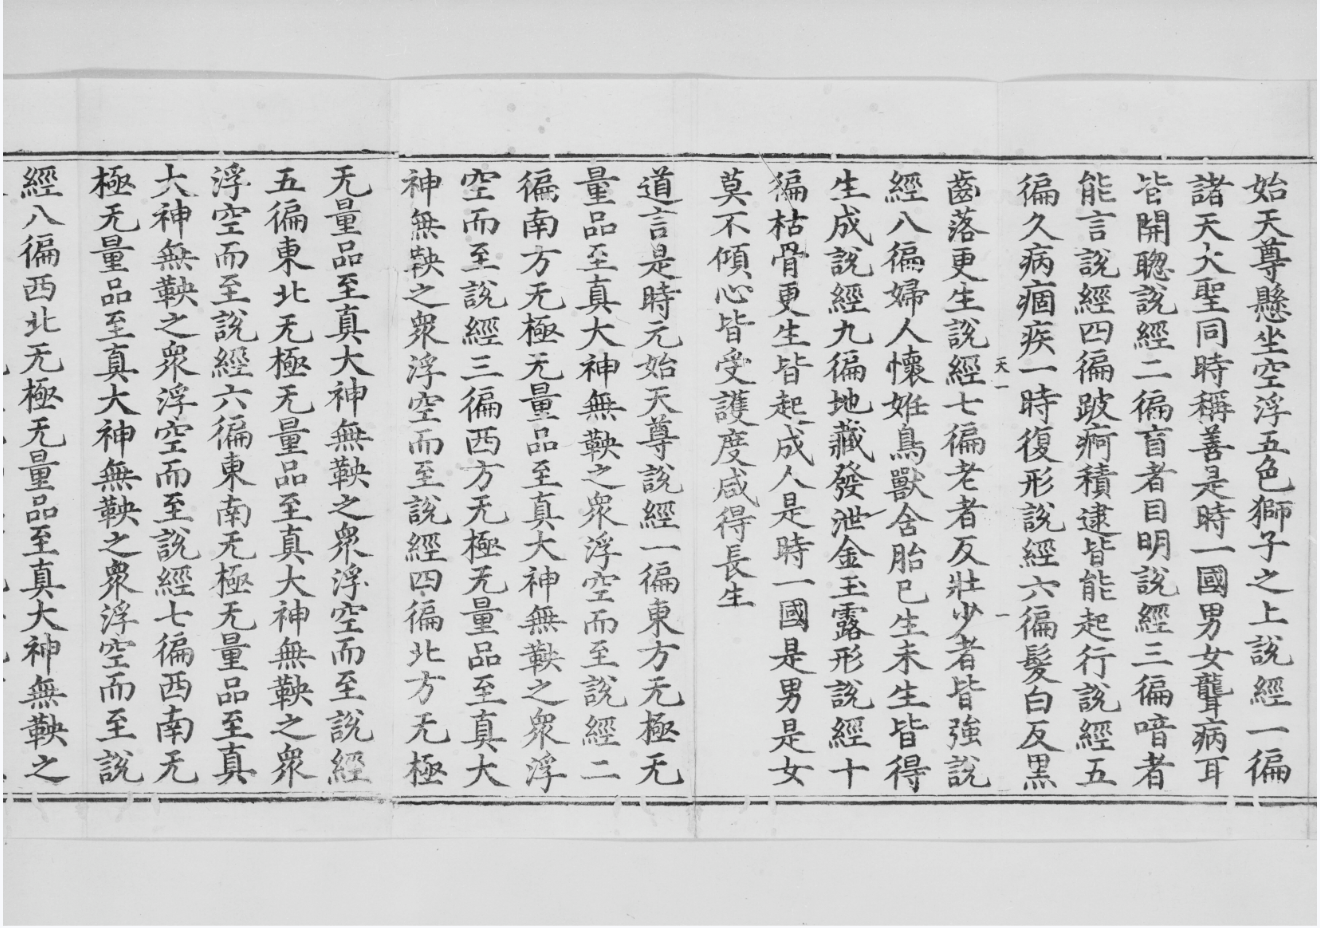 始天尊懸坐空浮五色獅子之上說經一徧
諸天大聖同時稱善是時一國男女聾病耳
皆開聦說經二徧盲者目明說經三徧喑者
能言說經四徧跛痾積逮皆能起行說經五
徧久病痼疾一時復形說經六徧髮白反黒
天一
一
齒落更生說經七徧老者反壯少者皆強說
經八徧婦人懷姙鳥獸含胎已生未生皆得
生成說經九徧地藏發泄金玉露形說經十
徧枯骨更生皆起成人是時一國是男是女
莫不傾心皆受護度咸得長生
道言是時元始天尊說經一徧東方无極无
量品至真大神無鞅之衆浮空而至說經二
徧南方无極无量品至真大神無鞅之衆浮
空而至說經三徧西方无極无量品至真大
神無鞅之衆浮空而至說經四徧北方无極
无量品至真大神無鞅之衆浮空而至說經
五徧東北无極无量品至真大神無鞅之衆
浮空而至說經六徧東南无極无量品至真
大神無鞅之衆浮空而至說經七徧西南无
極无量品至真大神無鞅之衆浮空而至說
經八徧西北无極无量品至真大神無鞅之